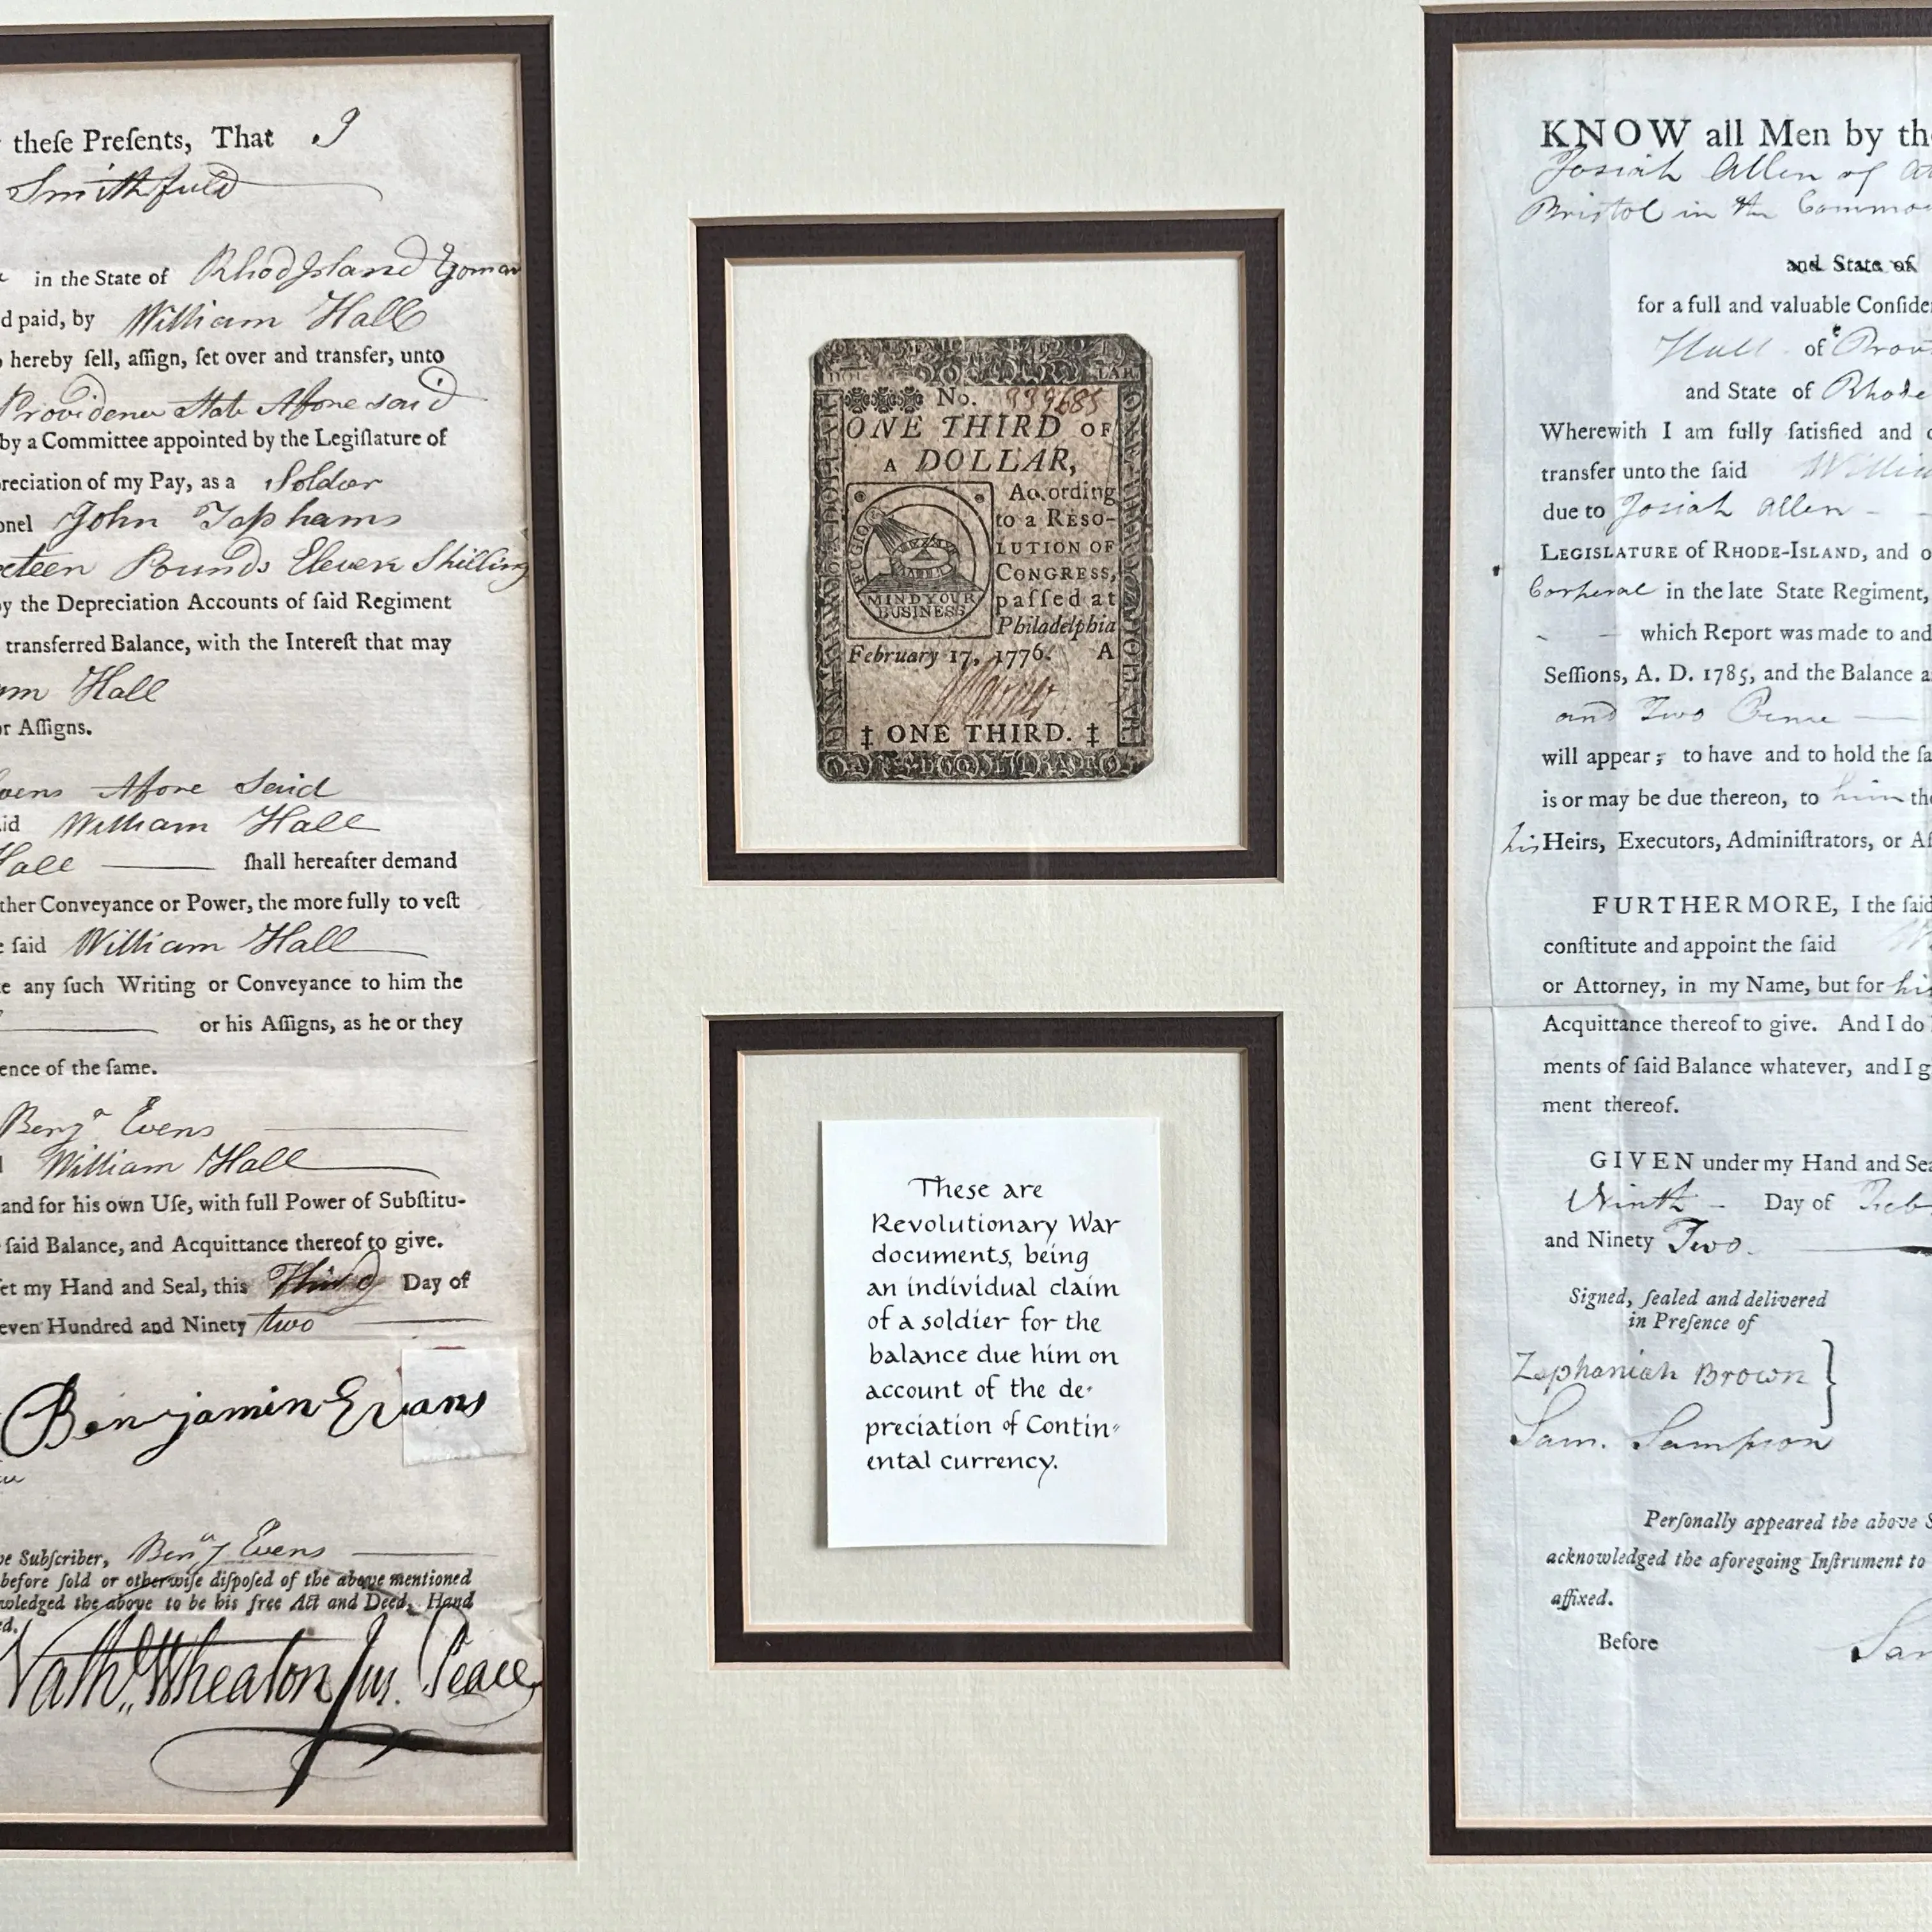 theſe Preſents, That I
Smithfield
in the State of Rhod Island Yoman
d paid, by William Hall
hereby ſell, aſſign, ſet over and transfer, unto
Providence State Afore said
by a Committee appointed by the Legiſlature of
reciation of my Pay, as a Soldier
onel John Tophams
eteen Pounds Eleven Shilling
y the Depreciation Accounts of ſaid Regiment
transferred Balance, with the Intereſt that may
am Hall
or Aſſigns.
vens Afore Said
aid William Hall
Hall ſhall hereafter demand
ther Conveyance or Power, the more fully to veſt
e ſaid William Hall
e any ſuch Writing or Conveyance to him the
or his Aſſigns, as he or they
ence of the ſame.
Benjᵃ Evens
William Hall
and for his own Uſe, with full Power of Subſtitu-
ſaid Balance, and Acquittance thereof to give.
et my Hand and Seal, this Third Day of
even Hundred and Ninety two
Benjamin Evans
ve Subſcriber, Benjᵃ Evens
before ſold or otherwiſe diſpoſed of the above mentioned
wledged the above to be his free Act and Deed, Hand
ed.
Nathˡ Wheaton Jus. Peace
DOL LAR
No. 939685
ONE THIRD OF
A DOLLAR,
According
to a RESO-
LUTION OF
CONGRESS,
paſſed at
Philadelphia
February 17, 1776. A
FUGIO
MIND YOUR
BUSINESS
‡ ONE THIRD. ‡
These are
Revolutionary War
documents, being
an individual claim
of a soldier for the
balance due him on
account of the de-
preciation of Contin-
ental currency.
KNOW all Men by the
Josiah Allen of At
Bristol in the Commo
and State of
for a full and valuable Conſide
Hall of Prov
and State of Rhode
Wherewith I am fully ſatisfied and
transfer unto the ſaid Willia
due to Josiah Allen
LEGISLATURE of RHODE-ISLAND, and o
Corporal in the late State Regiment,
which Report was made to and
Seſſions, A. D. 1785, and the Balance a
and Two Pence
will appear; to have and to hold the ſa
is or may be due thereon, to him the
his Heirs, Executors, Adminiſtrators, or Aſ
FURTHERMORE, I the ſaid
conſtitute and appoint the ſaid
or Attorney, in my Name, but for his
Acquittance thereof to give. And I do
ments of ſaid Balance whatever, and I g
ment thereof.
GIVEN under my Hand and Sea
Ninth Day of Feb
and Ninety Two.
Signed, ſealed and delivered
in Preſence of
Zephaniah Brown
Sam. Sampson
Perſonally appeared the above S
acknowledged the aforegoing Inſtrument to
affixed.
Before Sam